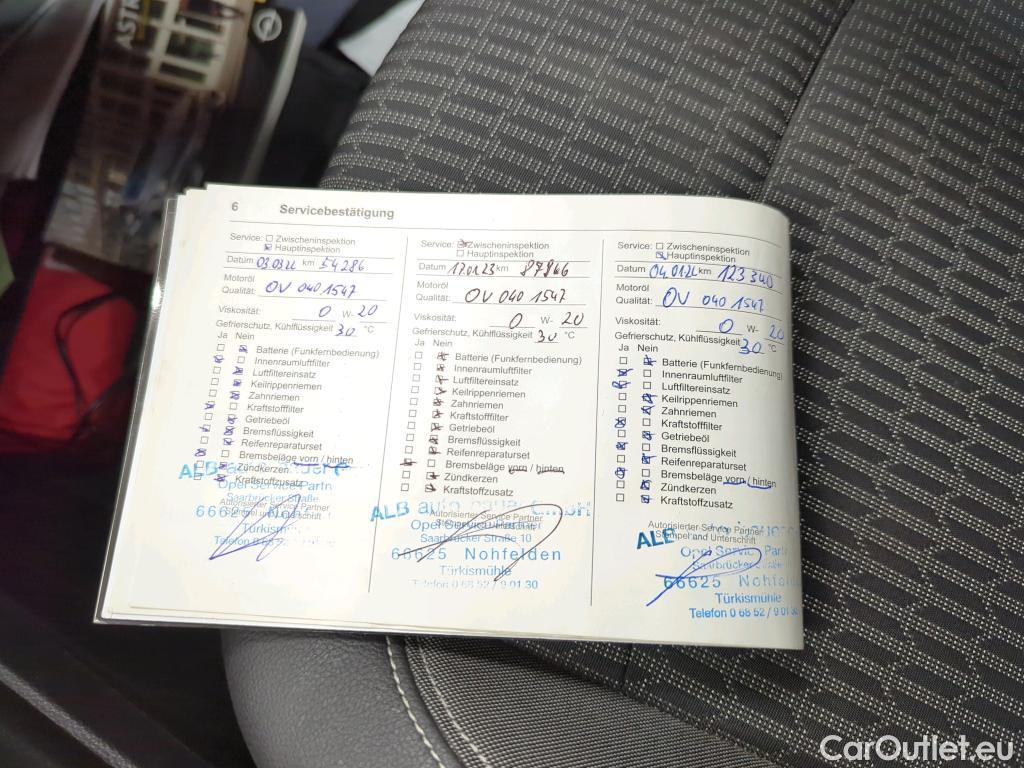 ASTR
6 Servicebestätigung
Service: Zwischeninspektion
Hauptinspektion
Datum 03.03.22 km 54286
Motoröl
Qualität: OV 040 1547
Viskosität: 0 W- 20
Gefrierschutz, Kühlflüssigkeit 30 °C
Ja Nein
Batterie (Funkfernbedienung)
Innenraumluftfilter
Luftfiltereinsatz
Keilrippenriemen
Zahnriemen
Kraftstofffilter
Getriebeöl
Bremsflüssigkeit
Reifenreparaturset
Bremsbeläge vorn / hinten
Zündkerzen
Kraftstoffzusatz
ALB
Opel Service Partn
Saarbrücker Straße
Autorisierter Service Partner
Stempel und Unterschrift
Türkism
Telefon 0 68 52 /
Service: Zwischeninspektion
Hauptinspektion
Datum 17.01.23 km 87966
Motoröl
Qualität: OV 040 1547
Viskosität: 0 W- 20
Gefrierschutz, Kühlflüssigkeit 30 °C
Ja Nein
Batterie (Funkfernbedienung)
Innenraumluftfilter
Luftfiltereinsatz
Keilrippenriemen
Zahnriemen
Kraftstofffilter
Getriebeöl
Bremsflüssigkeit
Reifenreparaturset
Bremsbeläge vorn / hinten
Zündkerzen
Kraftstoffzusatz
ALB auto bauer GmbH
Autorisierter Service Partner
Opel Service Partner
Stempel und Unterschrift
Saarbrücker Straße 10
66625 Nohfelden
Türkismühle
Telefon 0 68 52 / 9 01 30
Service: Zwischeninspektion
Hauptinspektion
Datum 04.01.24 km 123340
Motoröl
Qualität: OV 040 1547
Viskosität: 0 W- 20
Gefrierschutz, Kühlflüssigkeit 30 °C
Ja Nein
Batterie (Funkfernbedienung)
Innenraumluftfilter
Luftfiltereinsatz
Keilrippenriemen
Zahnriemen
Kraftstofffilter
Getriebeöl
Bremsflüssigkeit
Reifenreparaturset
Bremsbeläge vorn / hinten
Zündkerzen
Kraftstoffzusatz
Autorisierter Service Partner
Stempel und Unterschrift
ALB
Opel Service Partn
Saarbrücker Straße
66625 Nohfelden
Türkismühle
Telefon 0 68 52 / 9 01 30
CarOutlet.eu